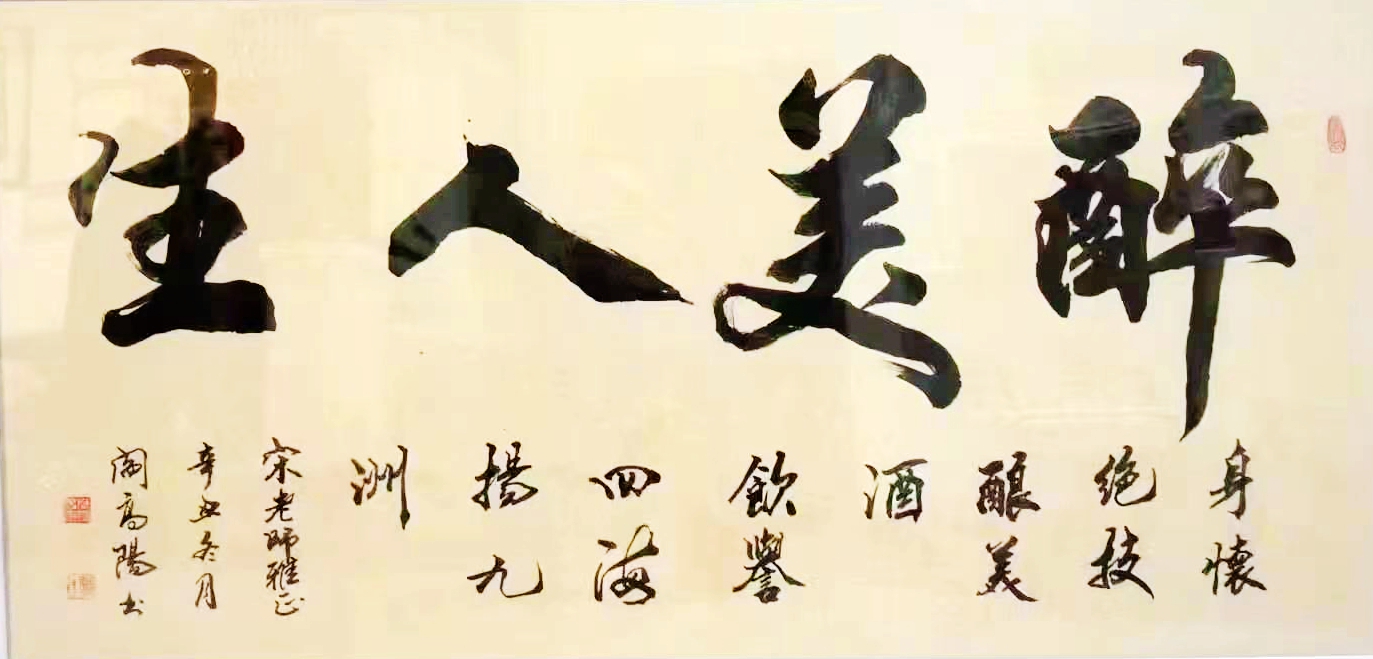 醉美人生
身懷
绝技
酿美
酒
飲譽
四海
揚九
洲
宋老師雅正
辛丑冬月
阁高陽书